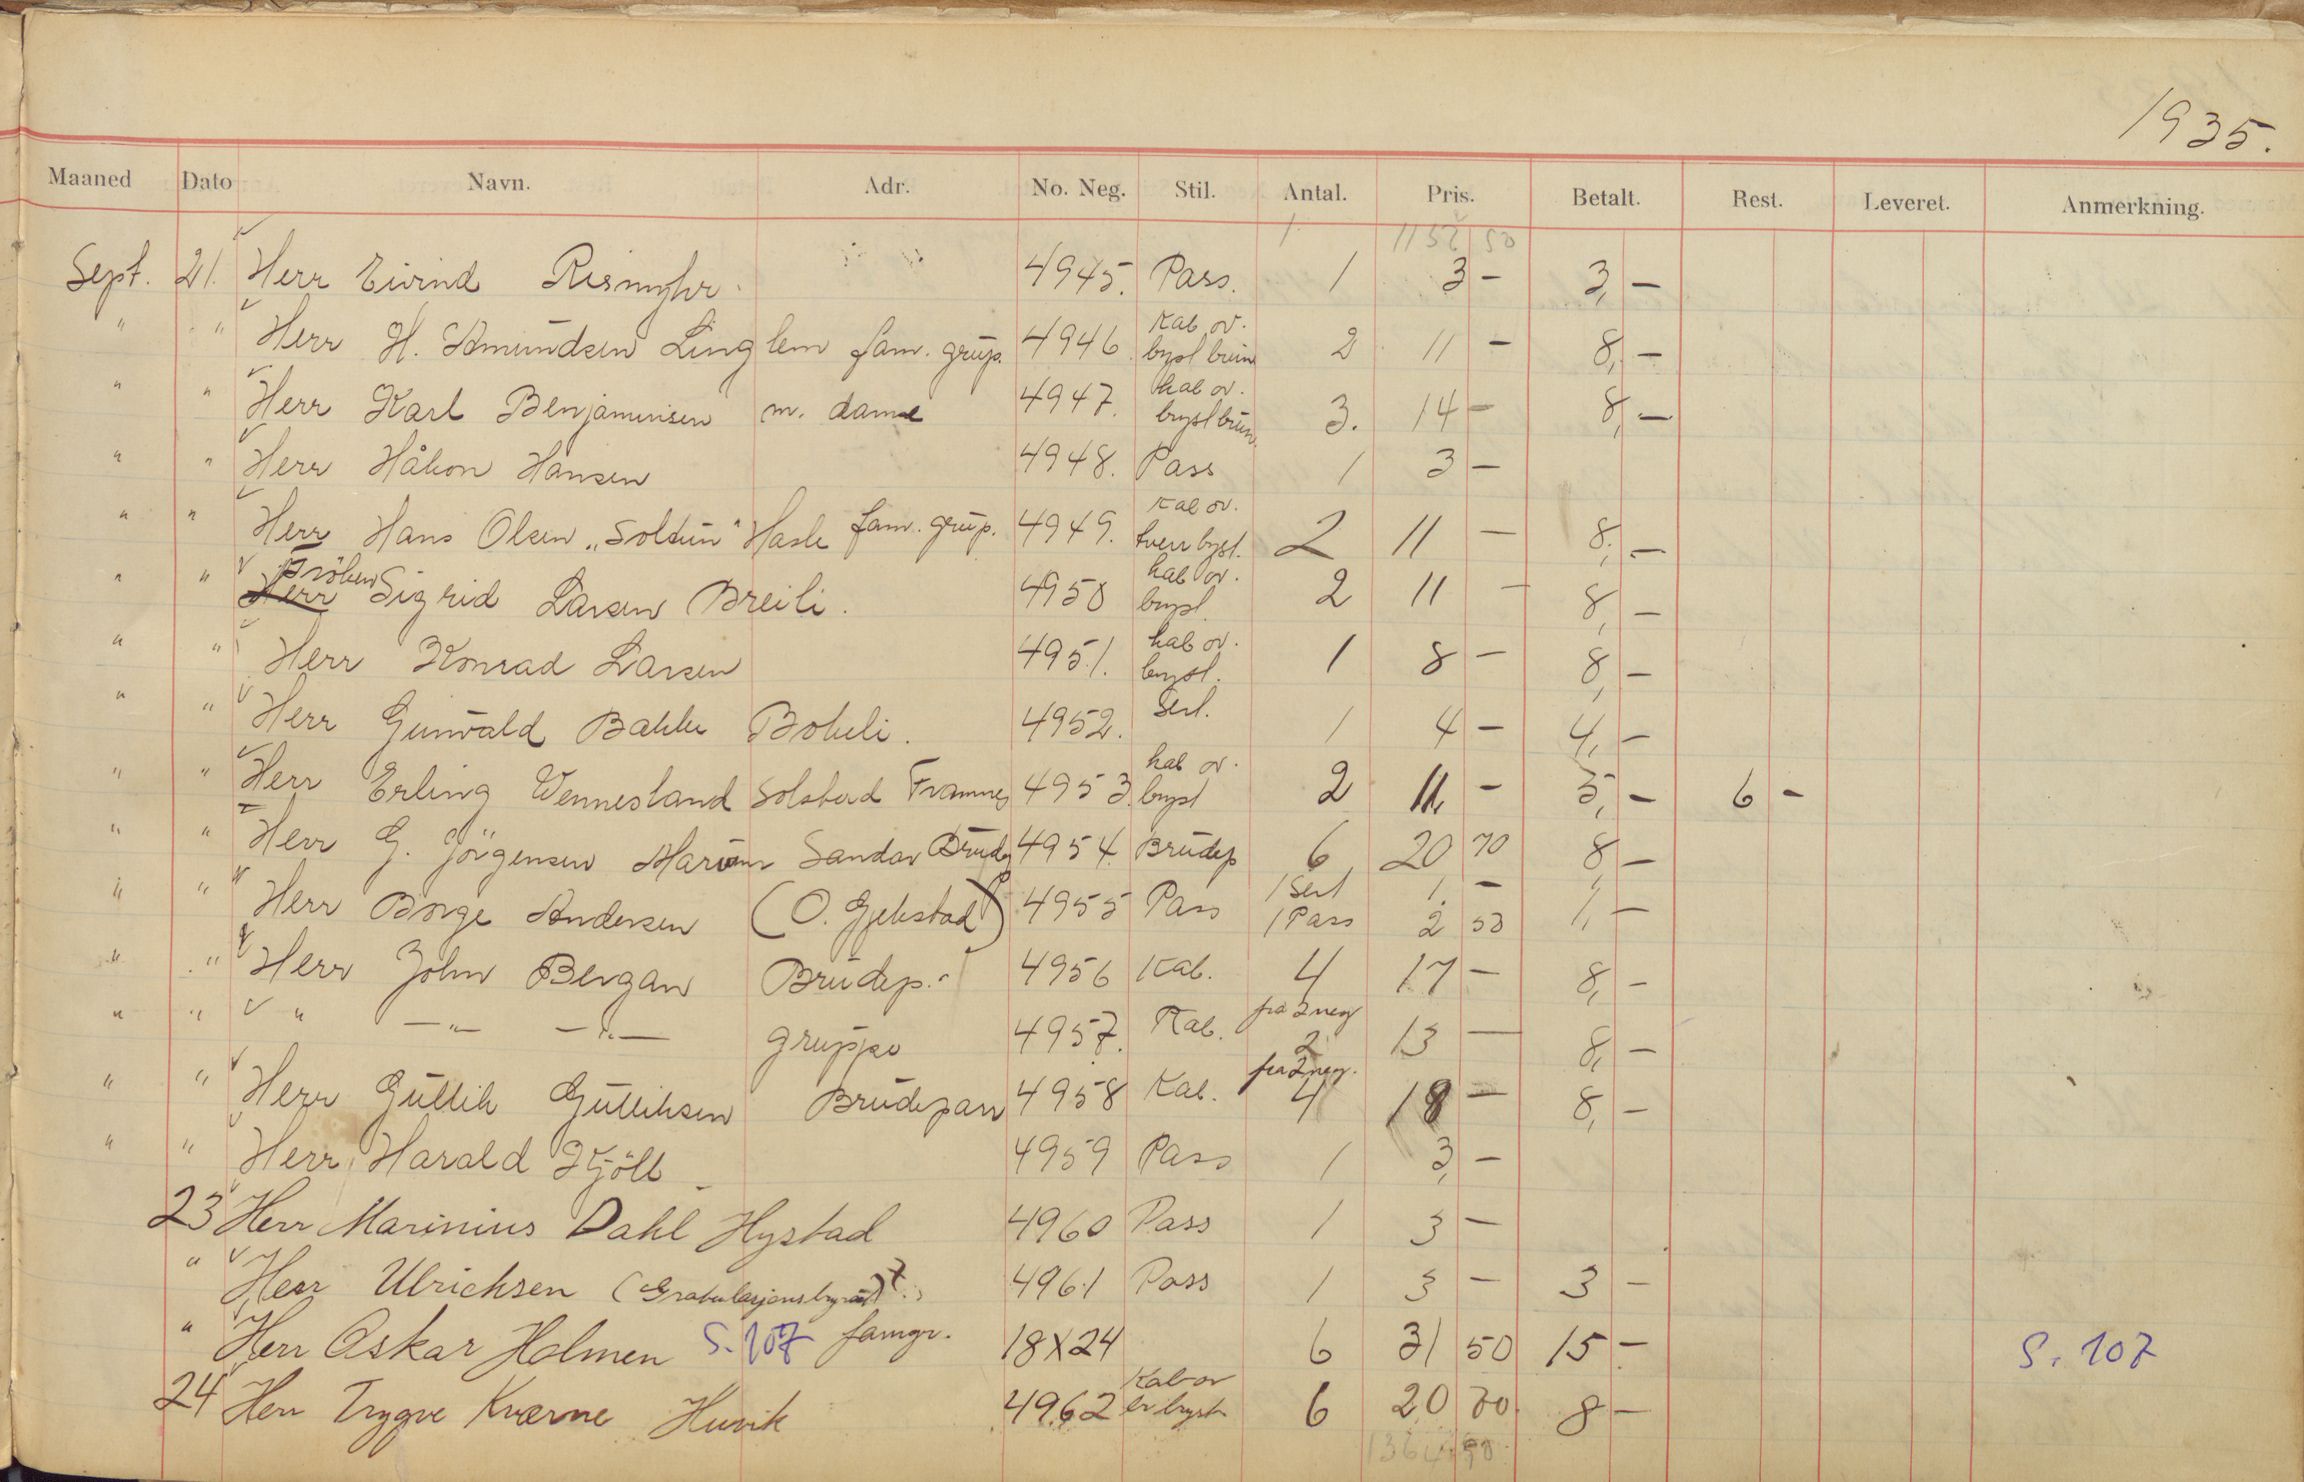 1935.
Maaned Dato Navn. Adr. No. Neg. Stil. Antal. Pris. Betalt. Rest. Leveret. Anmerkning.
1152 50
Sept. 21. Herr Eivind Rismyhr 4945. Pass. 1 3 - 3, -
" " Herr H. Amundsen Linglem fam. grup. 4946. Kab. ov. byst brun 2 11 - 8, -
" " Herr Karl Benjaminsen m. dame 4947. kab ov. bryst brun 3. 14 - 8, -
" " Herr Håkon Hansen 4948. Pass 1 3 -
" " Herr Hans Olsen „Soltun" Hasle fam. grup. 4949. Kab ov. tverr byst. 2 11 - 8, -
" " Fröken Sigrid Larsen Breili. 4950 kab ov. bryst. 2 11 - 8, -
" " Herr Konrad Larsen 4951. kab ov. bryst. 1 8 - 8, -
" " Herr Gunvald Bakke Bokeli. 4952. Serl. 1 4 - 4, -
" " Herr Erling Wennesland Solstad Framnes 4953. kab ov. bryst 2 11, - 5, - 6 -
" " Herr G. Jörgensen Sandar Brudep 4954. Brudep 6 20 70 8, -
" " Herr Borge Andersen (O. Gjekstad) 4955 Pass 1 Serl 1. - 1, -
1 Pass 2 50
" " Herr John Bergan Brudep. 4956 Kab. 4 17 - 8, -
" " " -"- -"- gruppe 4957. Kab. fra 2 neg 2 13 - 8, -
" " Herr Gullik Gulliksen Brudepar 4958 Kab. fra 2 neg. 4 18 - 8, -
" " Herr Harald Kjöll 4959 Pass 1 3, -
23 Herr Marinius Dahl Hystad 4960 Pass 1 3 -
" Herr Ulrichsen (Gratulasjonsbyrå) 4961 Pass 1 3 - 3 -
" Herr Oskar Holmen S. 107 famgr. 18X24 6 31 50 15 - S. 107
24 Herr Trygve Kværne Huvik 4962 Kab ov br bryst 6 20 70 8 -